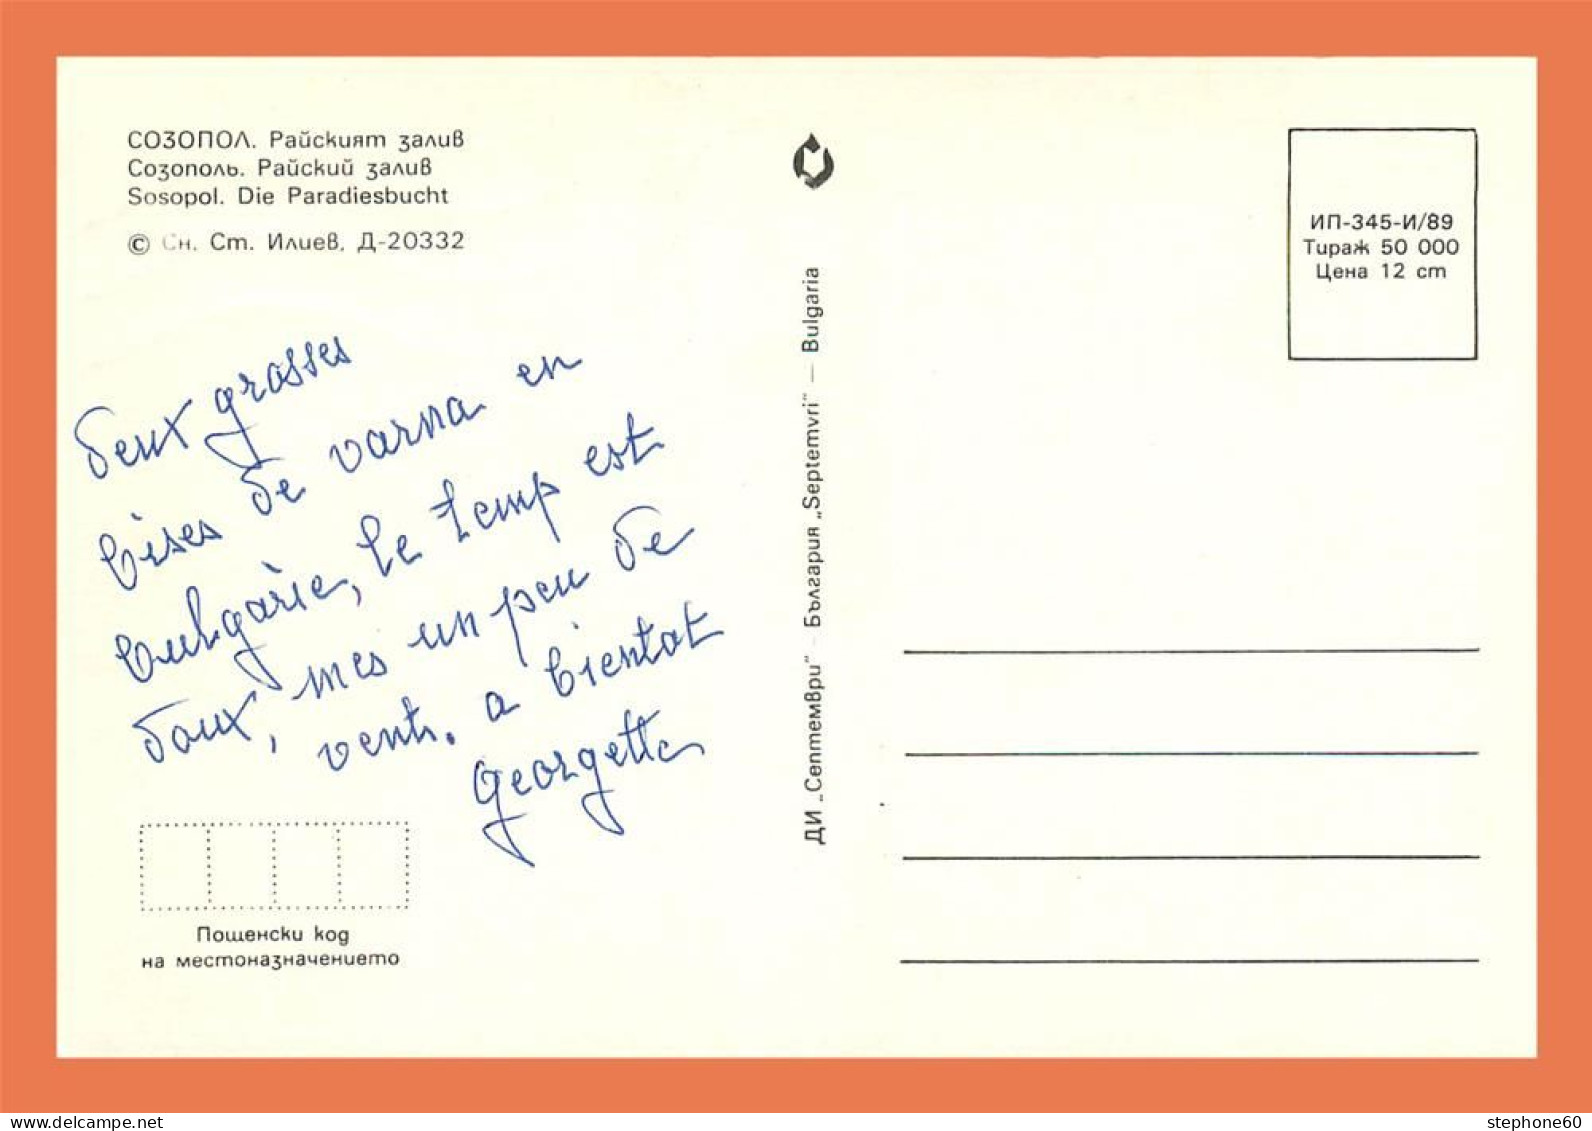 СОЗОПОЛ. Райският залив
Созополь. Райский залив
Sosopol. Die Paradiesbucht
© Сн. Ст. Илиев, Д-20332
deux grosses
bises de varna en
bulgarie, le temp est
doux, mes un peu de
vent. a bientot
georgette
Пощенски код
на местоназначението
ДИ „Септември“ - България „Septemvri“ — Bulgaria
ИП-345-И/89
Тираж 50 000
Цена 12 ст
www.delcampe.net
stephone60